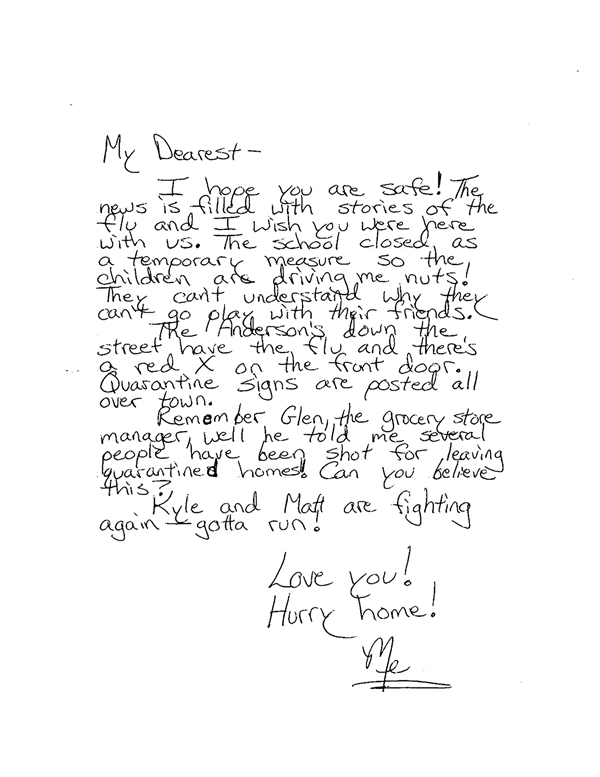 My Dearest –
I hope you are safe! The
news is filled with stories of the
flu and I wish you were here
with us. The school closed, as
a temporary measure so the
children are driving me nuts!
They can't understand why they
can't go play with their friends.
The Anderson's down the
street have the flu and there's
a red X on the front door.
Quarantine signs are posted all
over town.
Remember Glen, the grocery store
manager, well he told me several
people have been shot for leaving
quarantined homes! Can you believe
this?
Kyle and Matt are fighting
again – gotta run!
Love you!
Hurry home!
Me